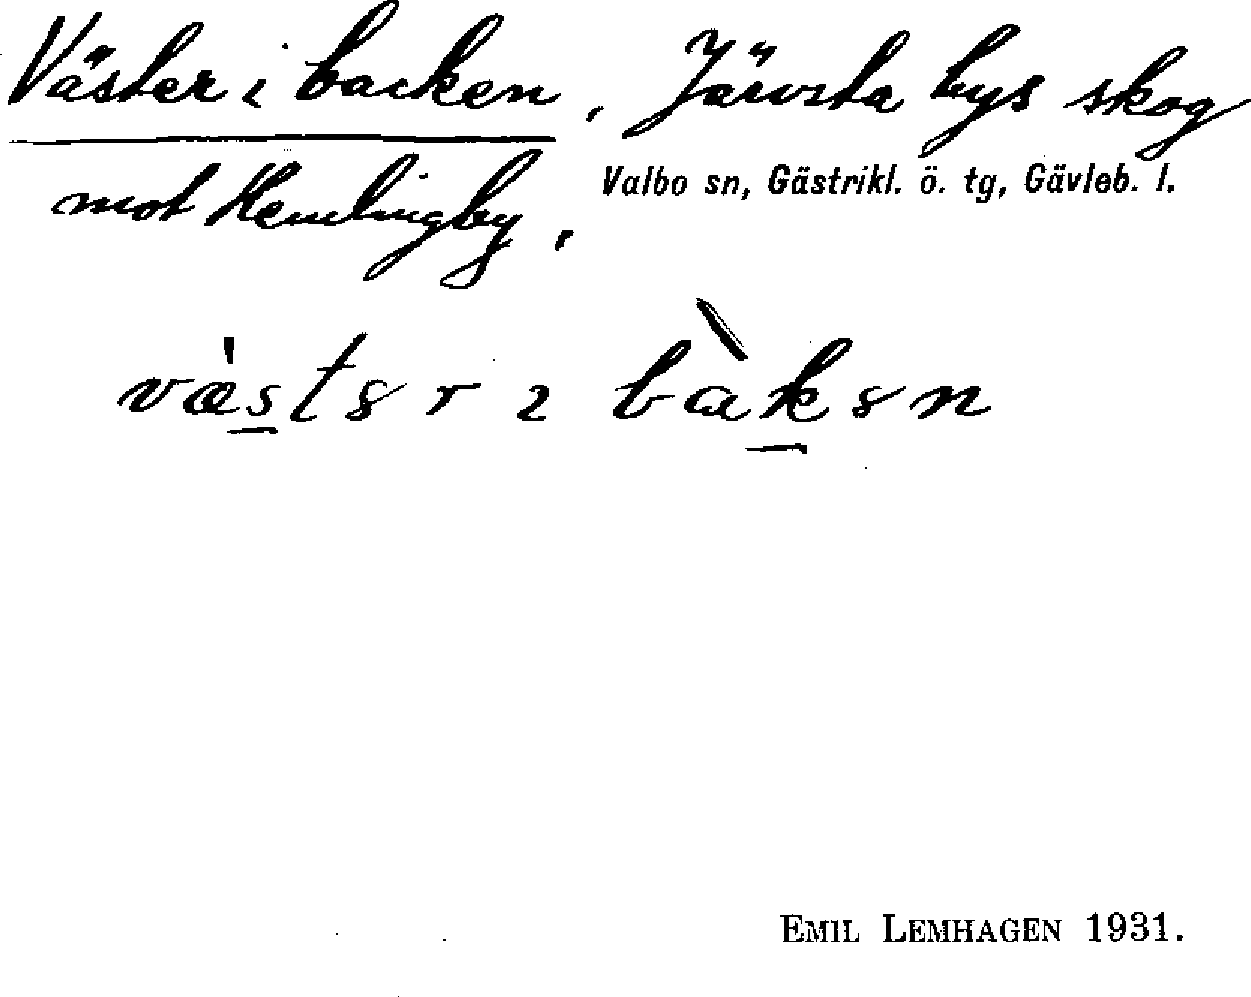 Väster i backen, Järvsta bys skog
mot Hemlingby,
Valbo sn, Gästrikl. ö. tg, Gävleb. l.
EMIL LEMHAGEN 1931.